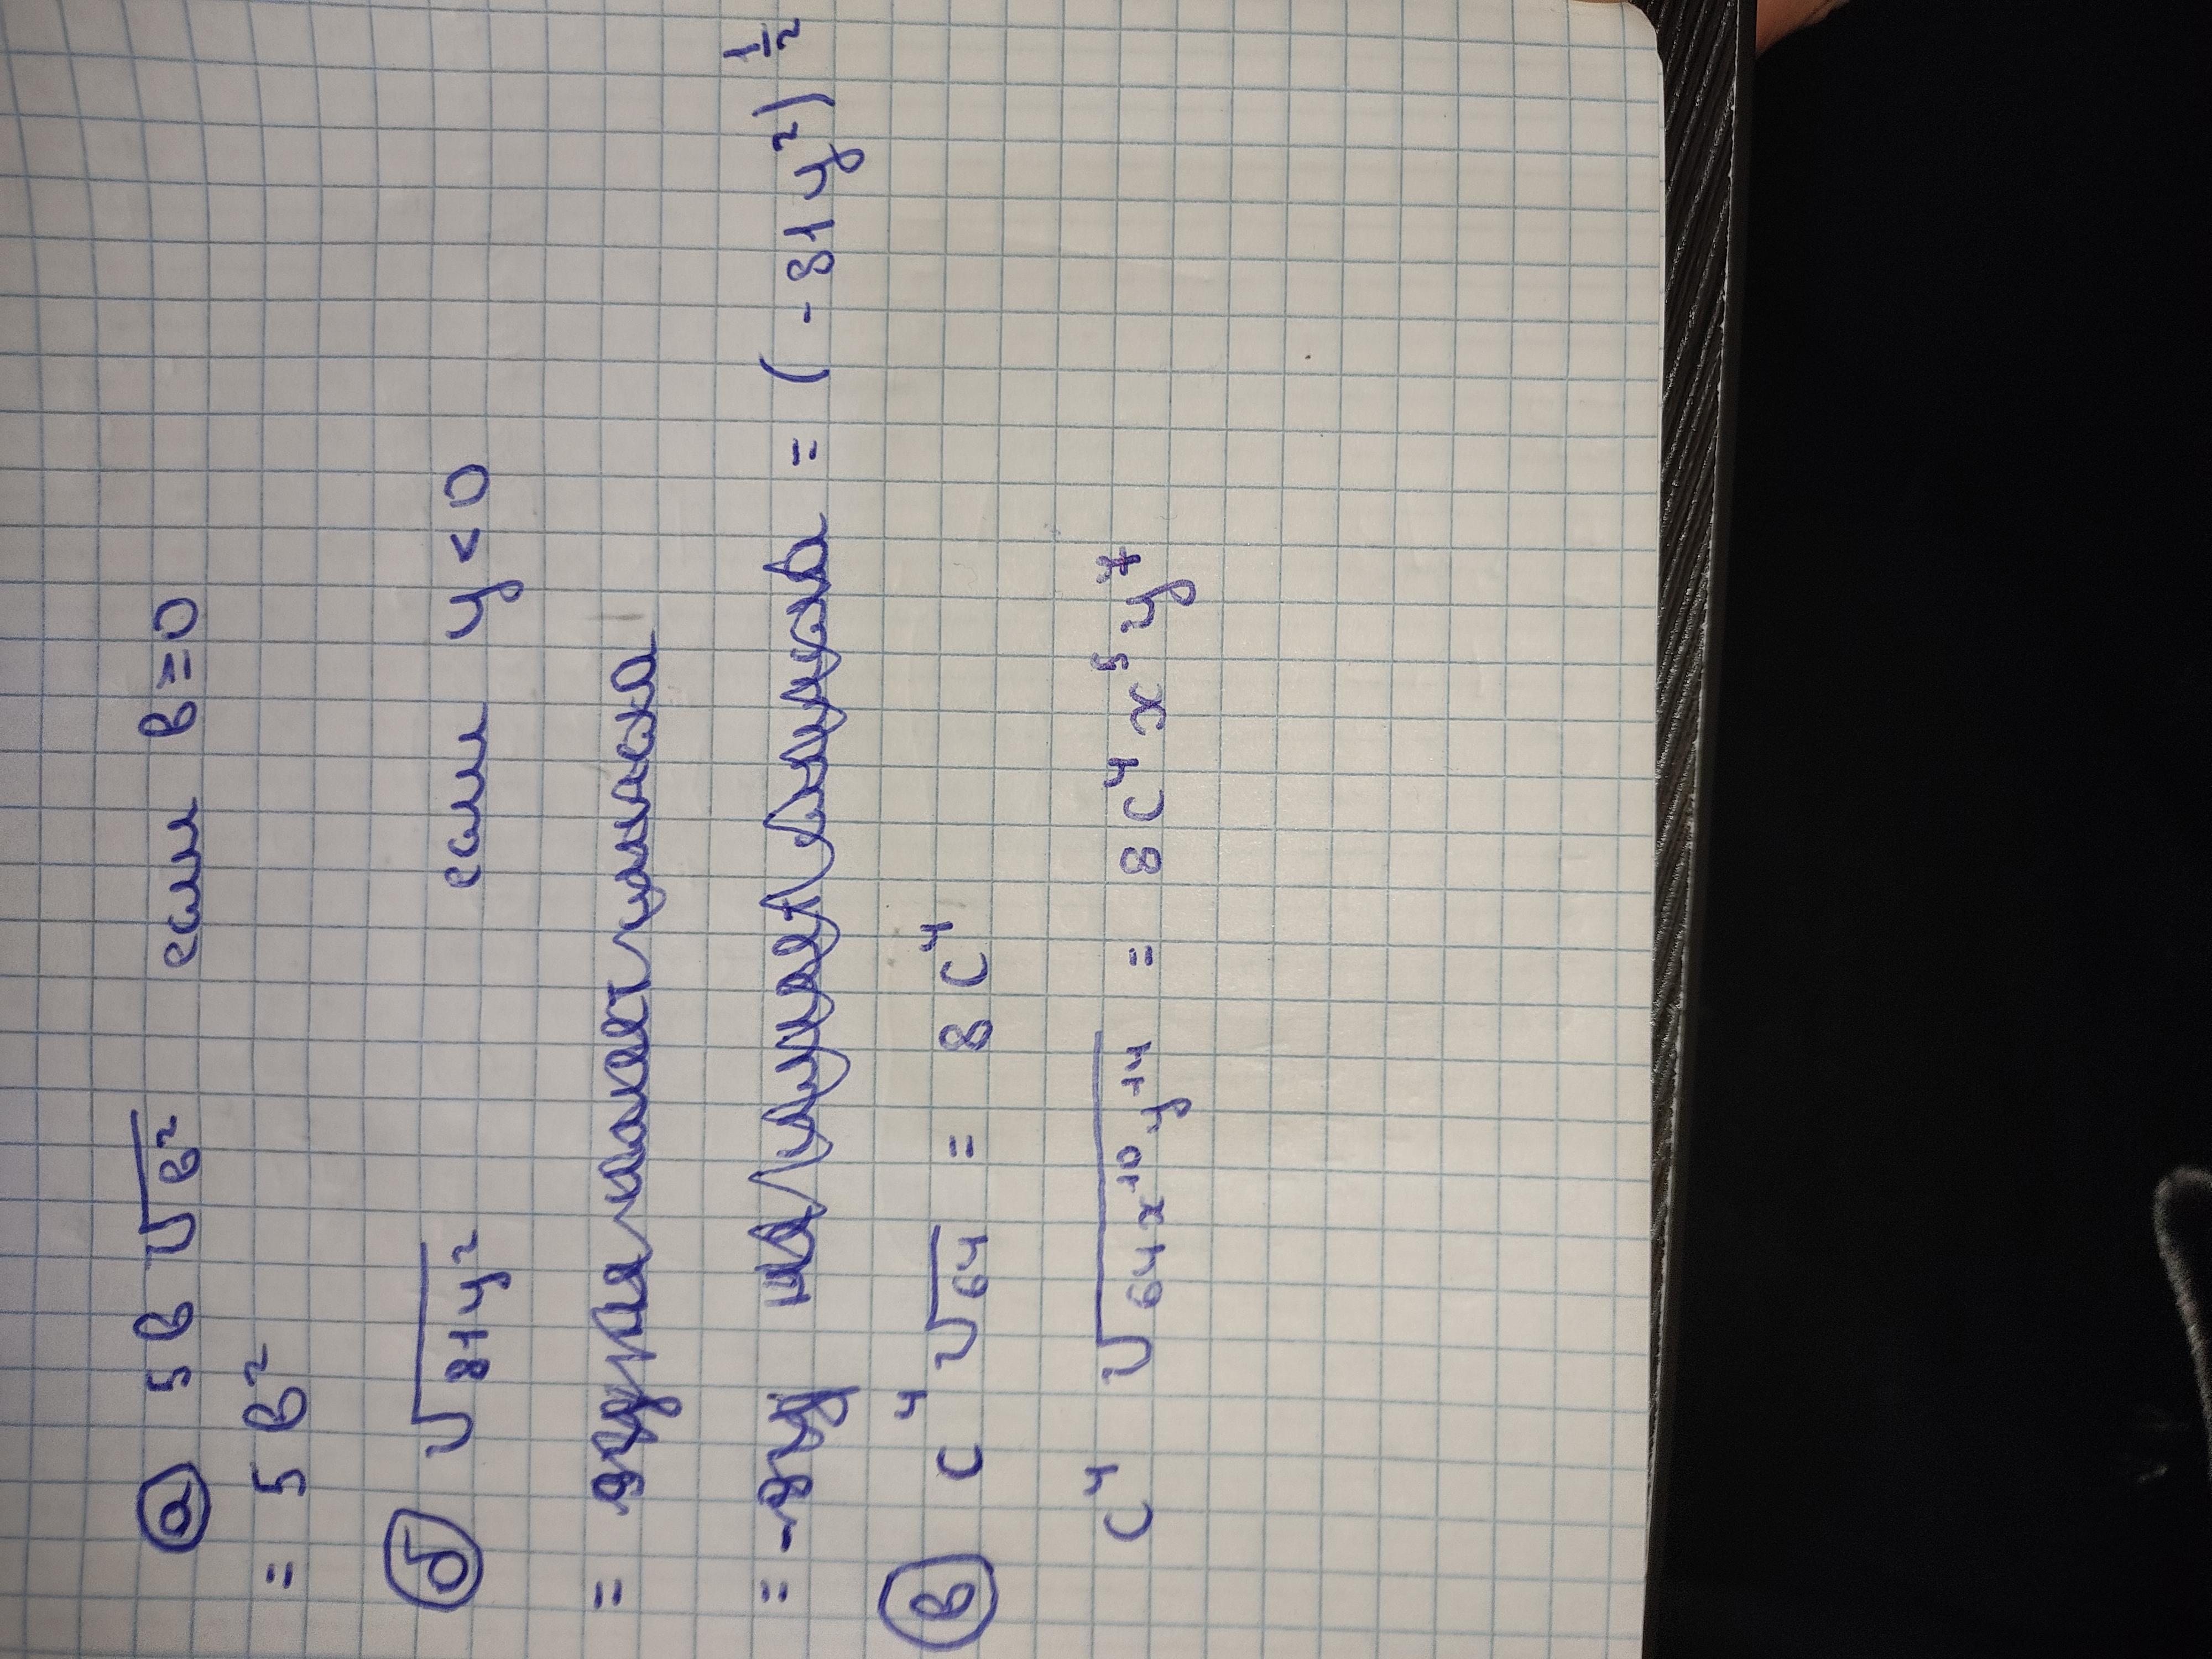 а 5в √в² если в=0
= 5в²
б √81y² если y<0
=
= = (-81y²)^½
в c⁴ √64 = 8c⁴
c⁴ √64x¹⁰y¹⁴ = 8c⁴x⁵y⁷